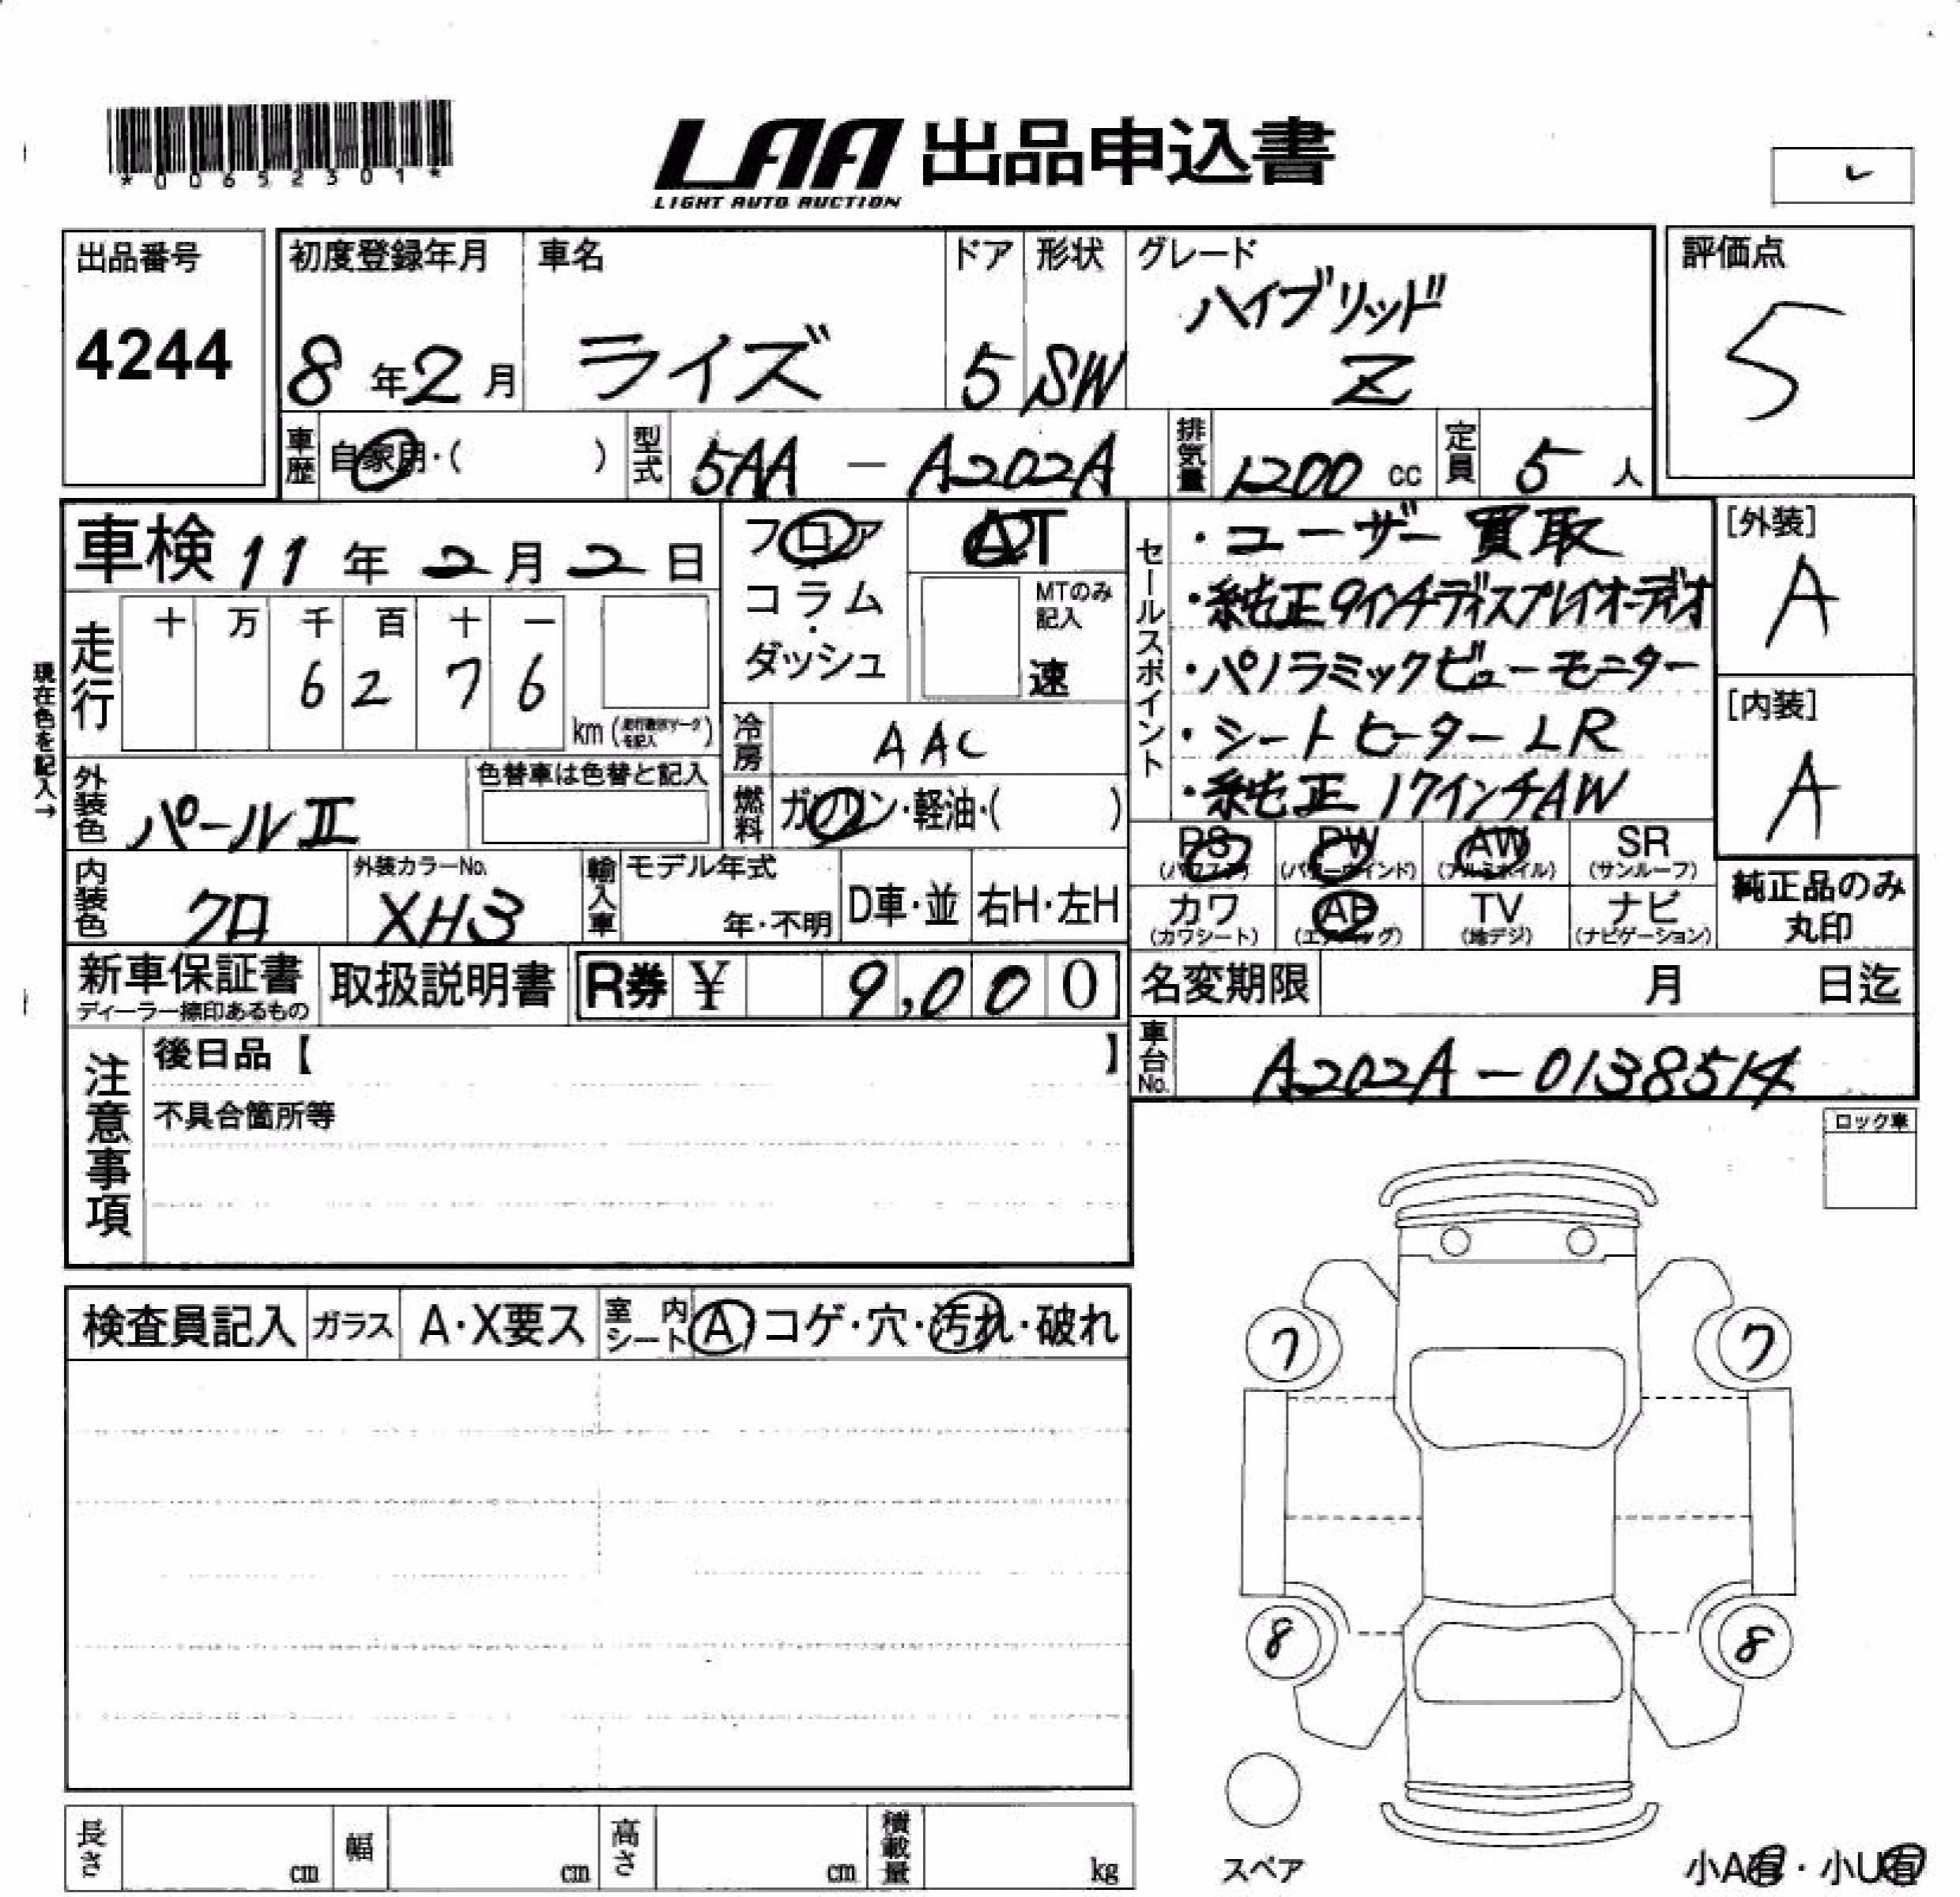 *00652301*
LAA 出品申込書
LIGHT AUTO AUCTION
レ
出品番号
4244
初度登録年月
8年2月
車名
ライズ
ドア
5
形状
SW
グレード
ハイブリッド
Z
評価点
5
車歴 自家用・( )
型式 5AA - A202A
排気量 1200 cc
定員 5 人
車検 11年2月2日
フロア
コラム
・
ダッシュ
AT
MTのみ
記入
速
セールスポイント
・ユーザー買取
・純正9インチディスプレイオーディオ
・パノラミックビューモニター
・シートヒーターLR
・純正17インチAW
[外装]
A
[内装]
A
現在色を記入→
走行
十 万 千 百 十 一
6 2 7 6
km
冷房 AAC
燃料 ガソリン・軽油・( )
外装色 パールⅡ
色替車は色替と記入
PS (パワステ)
PW (パワーウインド)
AW (アルミホイル)
SR (サンルーフ)
カワ (カワシート)
AB (エアバッグ)
TV (地デジ)
ナビ (ナビゲーション)
純正品のみ
丸印
内装色 クロ
外装カラーNo.
XH3
輸入車
モデル年式
年・不明
D車・並
右H・左H
新車保証書
ディーラー捺印あるもの
取扱説明書
R券 ¥ 9,000
名変期限 月 日迄
車台No. A202A-0138514
注意事項
後日品【 】
不具合箇所等
ロック車
検査員記入
ガラス
A・X要ス
室内シート
A・コゲ・穴・汚れ・破れ
7 7
8 8
スペア
小A有・小U有
長さ cm
幅 cm
高さ cm
積載量 kg